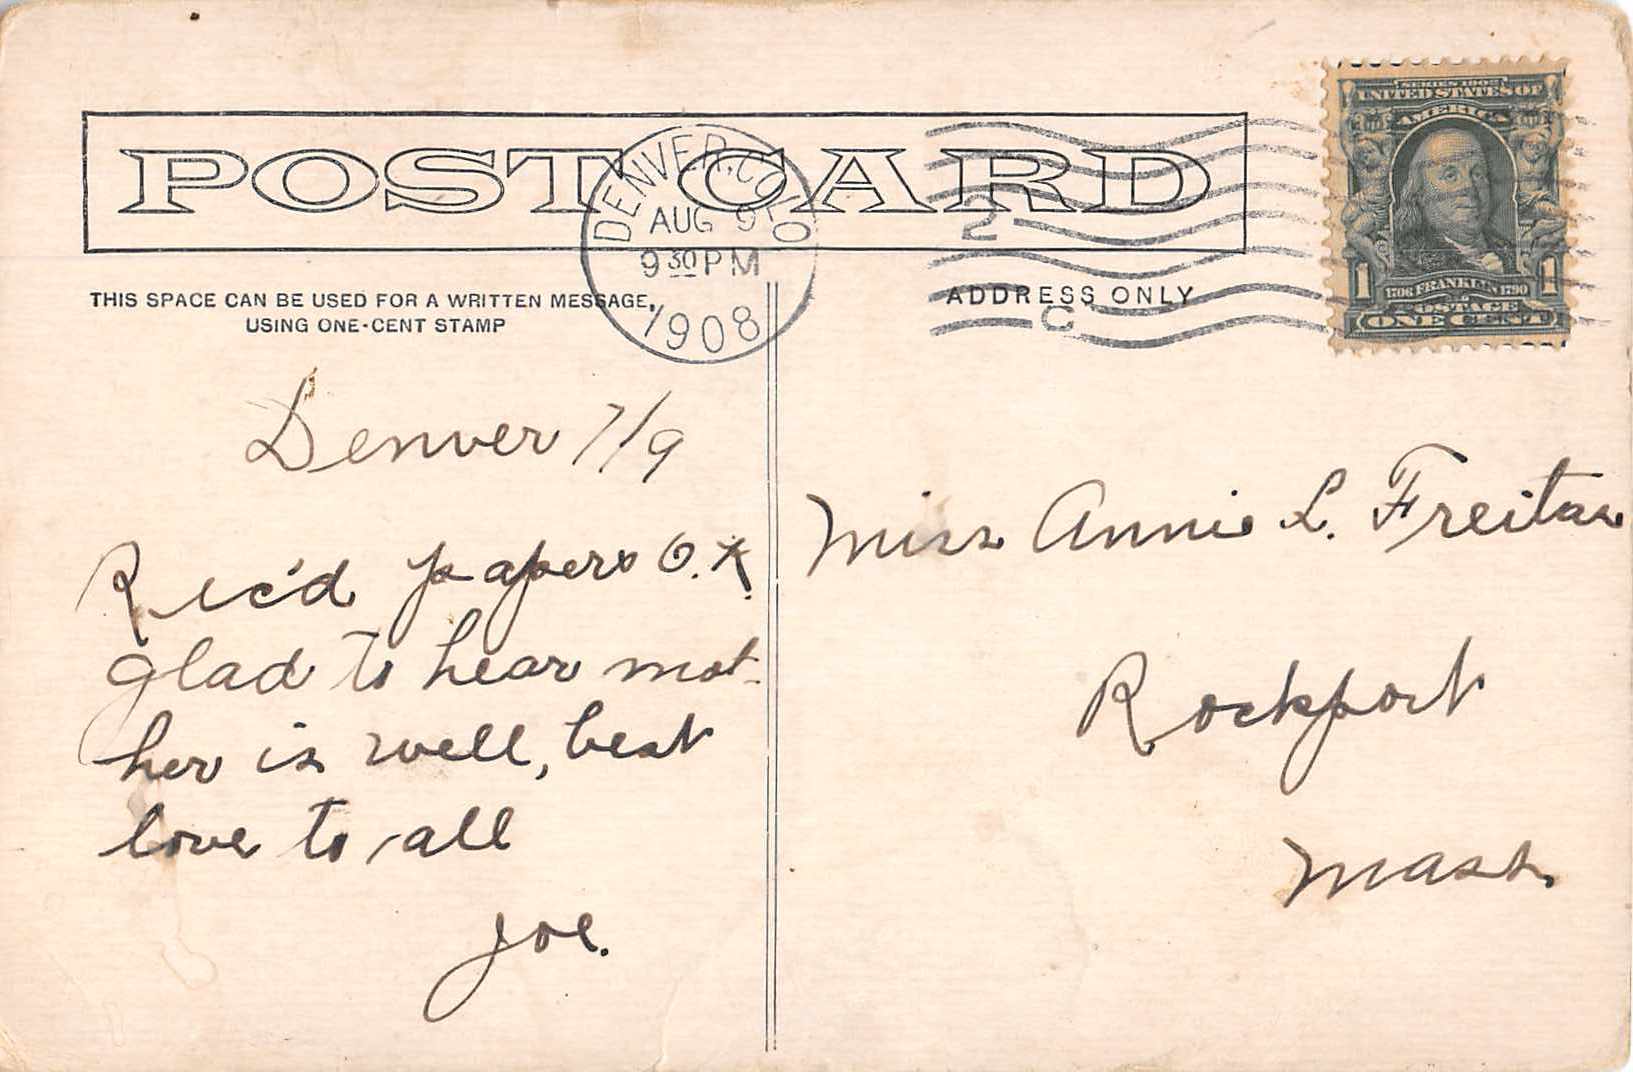 POST CARD
DENVER, COLO
AUG 9
9 30 PM
1908
2
C
SERIES 1902
UNITED STATES OF
AMERICA
1 1706 FRANKLIN 1790 1
POSTAGE
ONE CENT
THIS SPACE CAN BE USED FOR A WRITTEN MESSAGE,
USING ONE-CENT STAMP
ADDRESS ONLY
Denver 7/9
Rec'd papers O.K.
glad to hear mot-
her is well, best
love to all
Joe.
Miss Annie L. Freitas
Rockport
Mass.